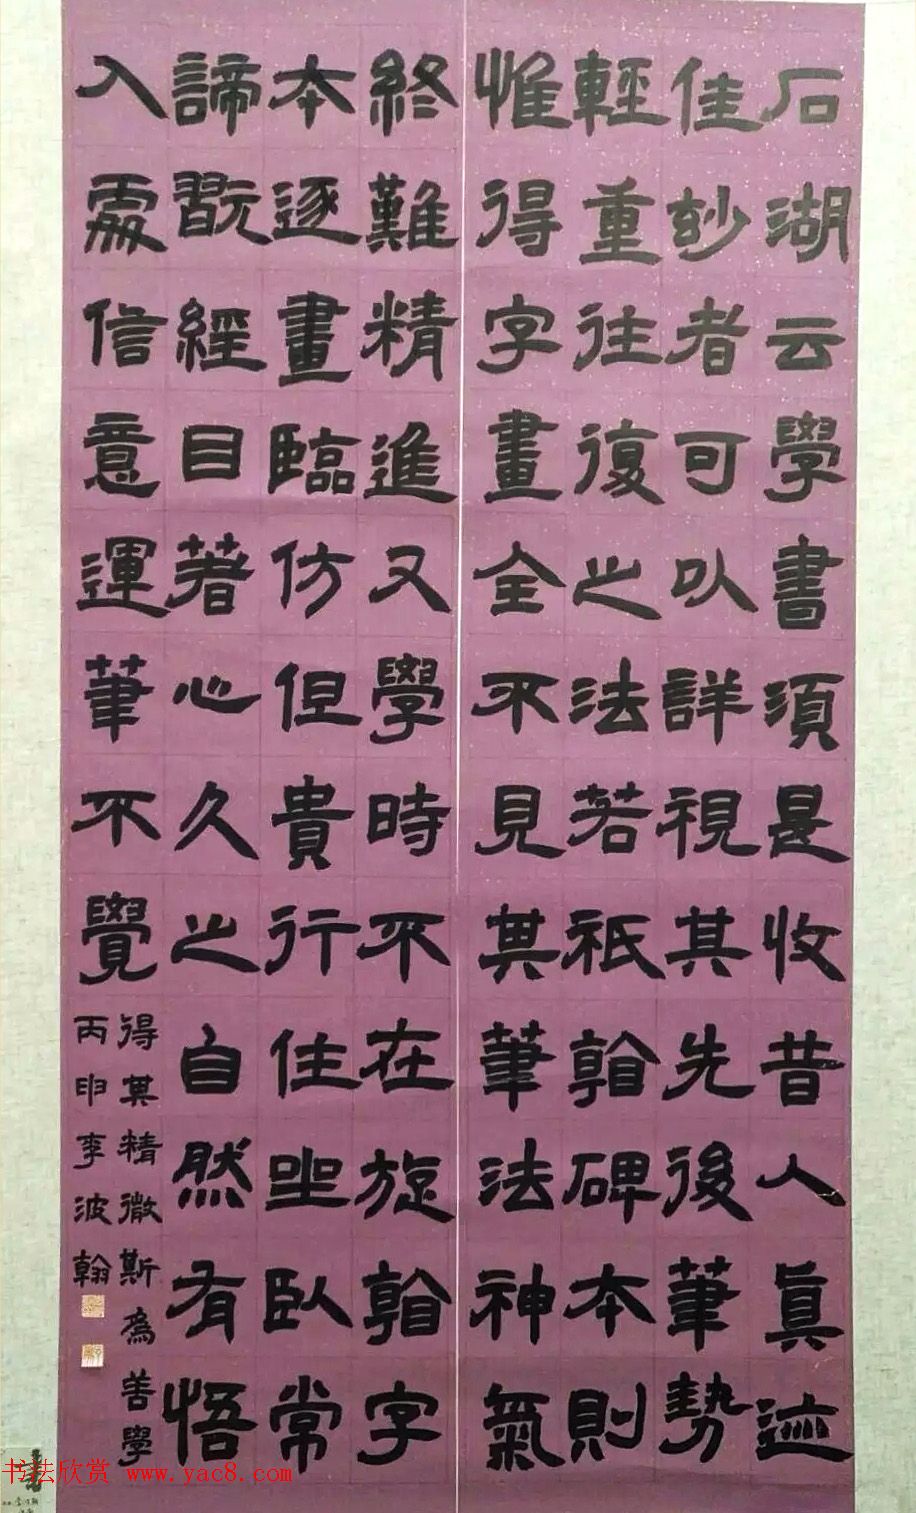 石湖云學書須是收昔人真迹
佳妙者可以詳視其先後筆勢
輕重往復之法若祇看碑本則
惟得字畫全不見其筆法神氣
終難精進又學時不在旋看字
本逐畫臨仿但貴行住坐臥常
諦翫經目著心久之自然有悟
入處信意運筆不覺
得其精微斯為善學
丙申李波翰
书法欣赏 www.yac8.com